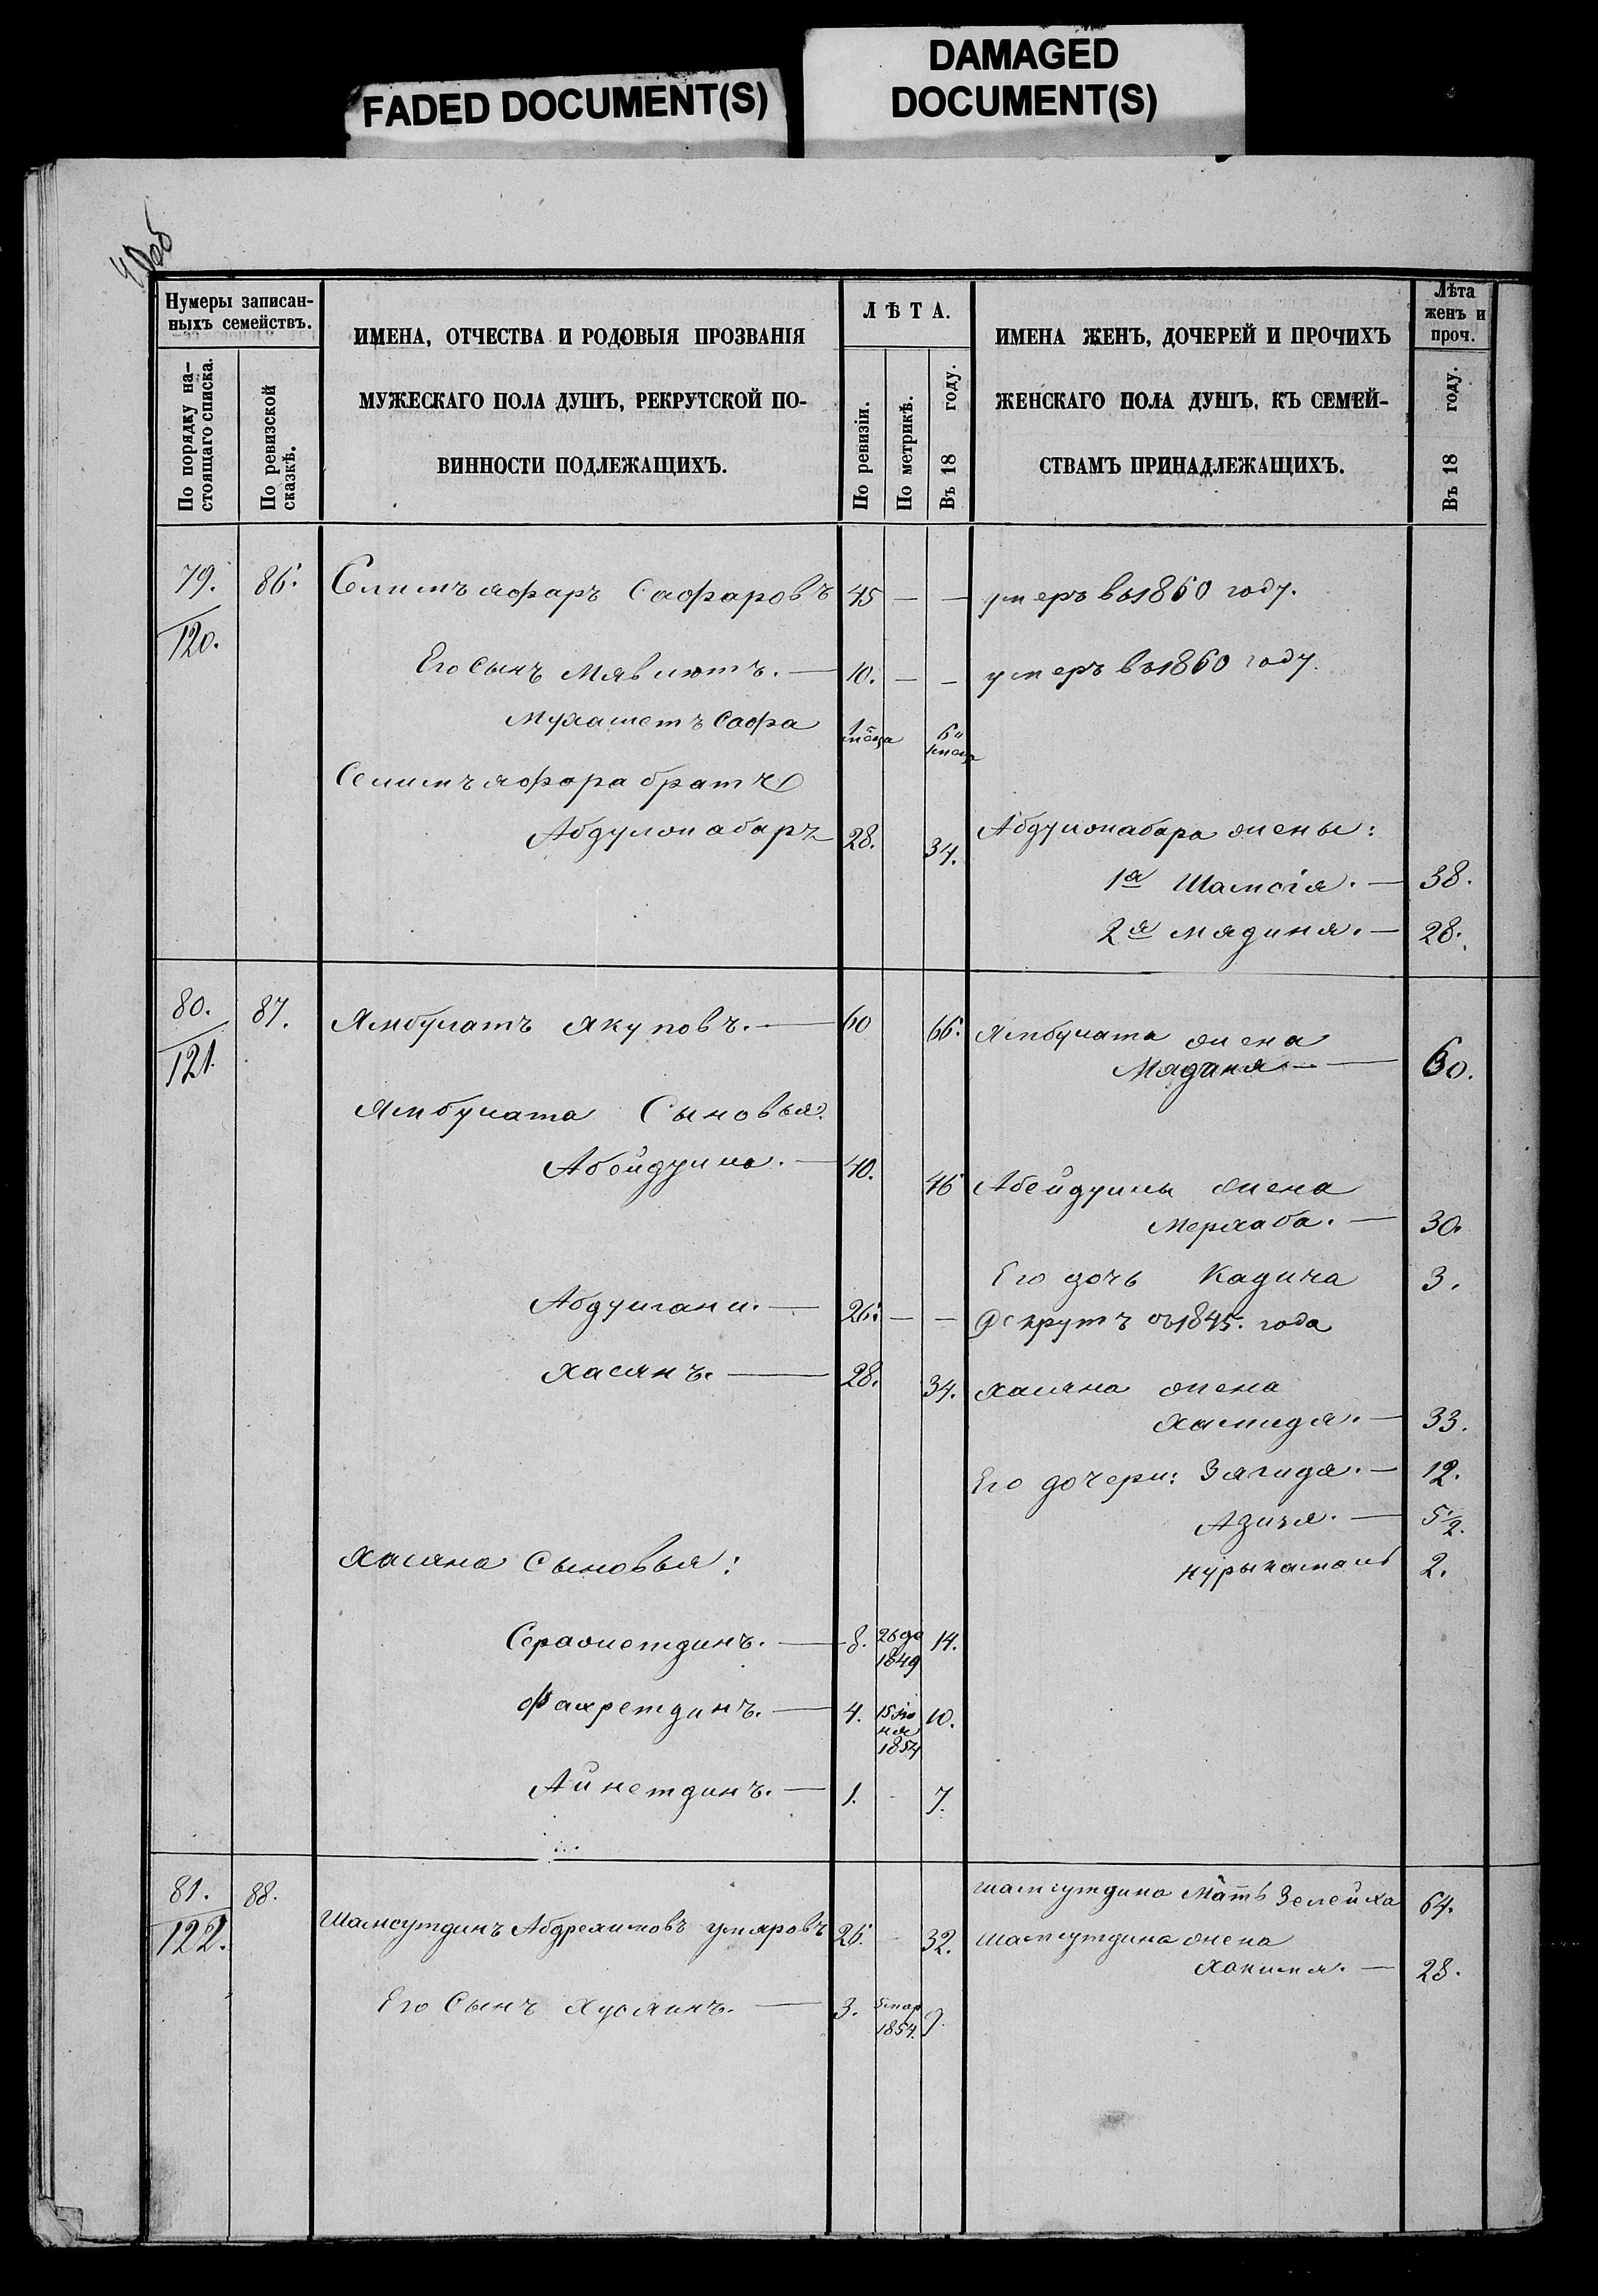 FADED DOCUMENT(S)
DAMAGED
DOCUMENT(S)
40об
Нумеры записан-
ныхъ семействъ.
По порядку на-
стоящаго списка.
По ревизской
сказкѣ.
ИМЕНА, ОТЧЕСТВА И РОДОВЫЯ ПРОЗВАНІЯ
МУЖЕСКАГО ПОЛА ДУШЪ, РЕКРУТСКОЙ ПО-
ВИННОСТИ ПОДЛЕЖАЩИХЪ.
ЛѢТА.
По ревизіи.
По метрикѣ.
Въ 18 году.
ИМЕНА ЖЕНЪ, ДОЧЕРЕЙ И ПРОЧИХЪ
ЖЕНСКАГО ПОЛА ДУШЪ, КЪ СЕМЕЙ-
СТВАМЪ ПРИНАДЛЕЖАЩИХЪ.
Лѣта
женъ и
проч.
Въ 18 году.
79. 86. Селимъяфаръ Сафаровъ 45 — — умеръ въ 1860 году.
120.
Его сынъ Мявлютъ. — 10. — — умеръ въ 1860 году.
Мухаметъ Сафа 1 6
Селимъяфара братъ
Абдулжабаръ 28. 34. Абдулжабара жены:
1я Шамсія. — 38.
2я Мядиня. — 28.
80. 87. Ямбулатъ Якуповъ. — 60 66. Ямбулата жена
121. Мядиня. — 60.
Ямбулата Сыновья:
Абейдулла. — 40. 46 Абейдуллы жена
Мерхаба. — 30.
Его дочь Кадича 3.
Абдулгани. — 26. — — Рекрутъ съ 1845. года
Хасянъ. — 28. 34. Хасяна жена
Хамидя. — 33.
Его дочери: Зягидя. — 12.
Азизя. — 5 1/2.
Нурыкамалъ 2.
Хасяна Сыновья:
Серажетдинъ. — 8. 26 де 1849 14.
Фахретдинъ. — 4. 15 Ію
ня
1854 10.
Айнетдинъ. — 1. - 7.
81. 88. Шамсутдина Мать Зелейха 64.
122. Шамсутдинъ Абдрехимовъ Умяровъ 26. - 32. Шамсутдина жена
Хакимя. — 28.
Его Сынъ Хусяинъ. — 3. 5 мар
1854. 9.